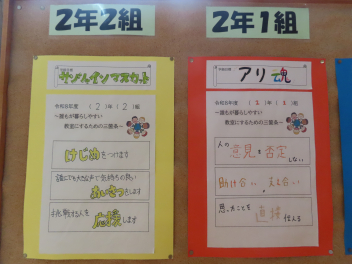 2年2組
2年1組
学級目標
令和6年度 (2)年(2)組
~誰もが暮らしやすい
教室にするための三箇条~
けじめをつけます
誰にでも大きな声で気持ちの良い
あいさつをします
挑戦する人を
応援します
学級目標
アリ魂
令和6年度 (2)年(1)組
~誰もが暮らしやすい
教室にするための三箇条~
人の意見を否定しない
助け合い、支え合い
思ったことを直接伝える